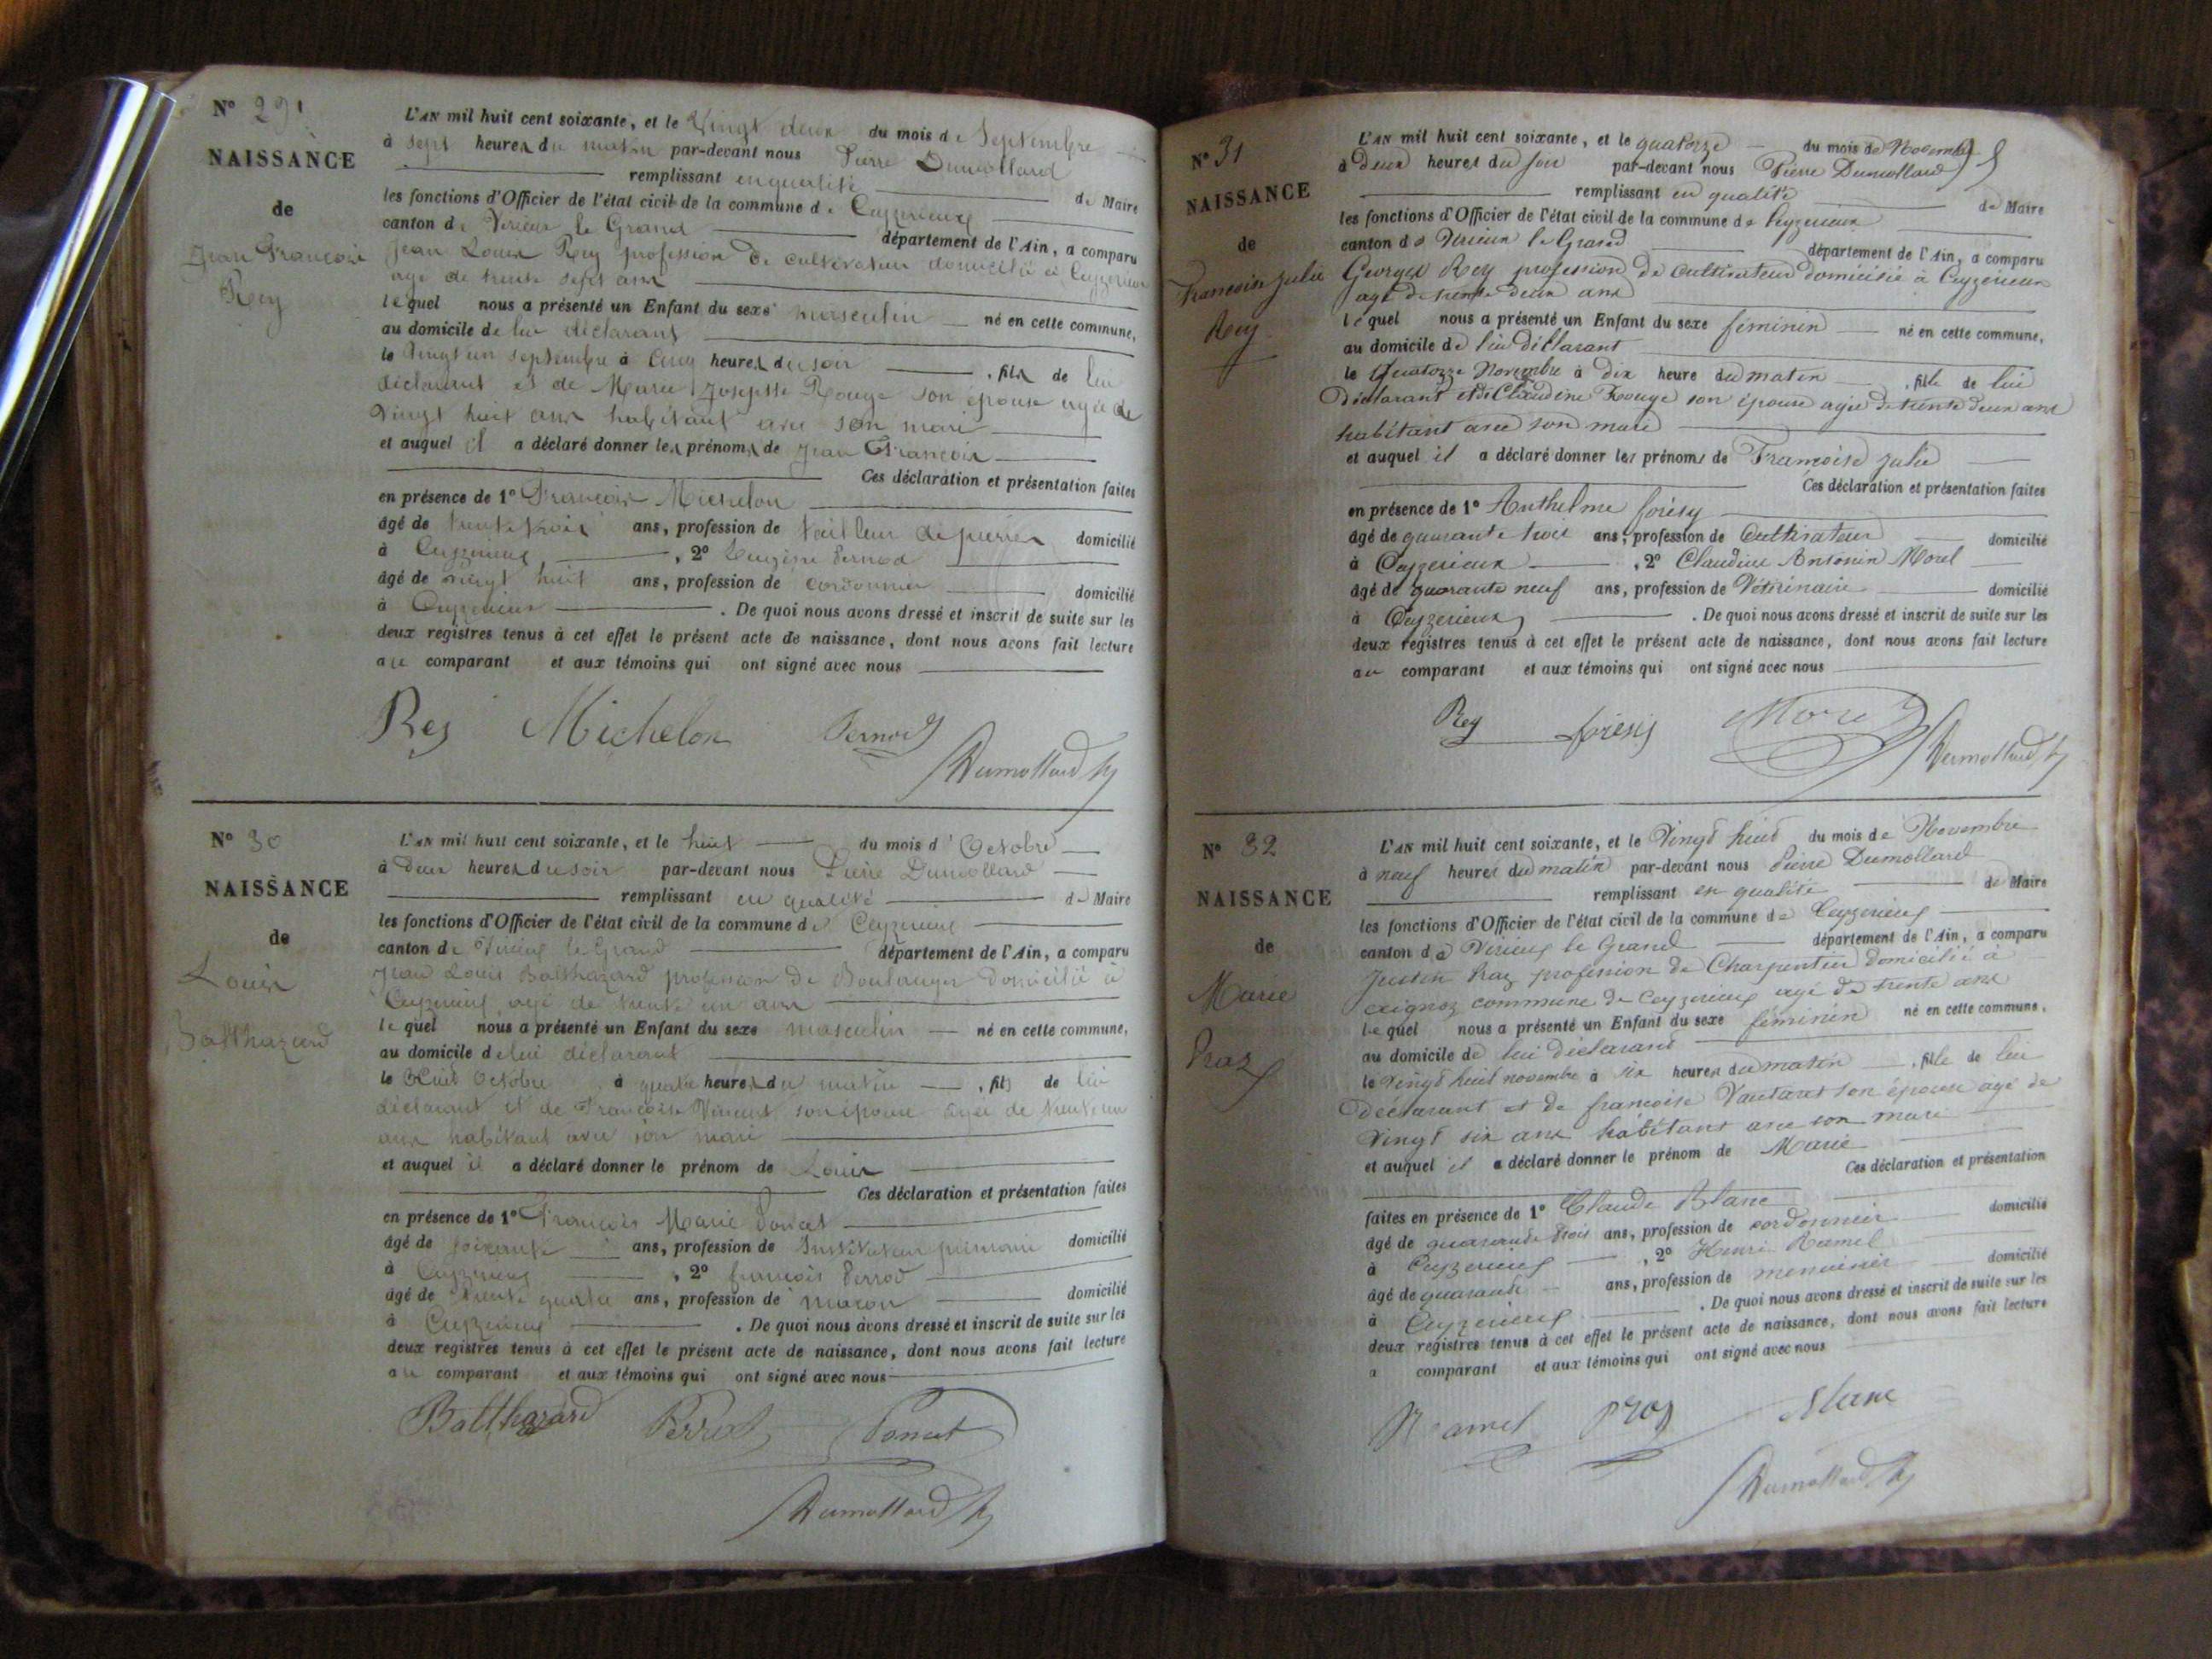 N° 29
NAISSANCE
de
Jean François
Rey
L'AN mil huit cent soixante, et le Vingt deux du mois de Septembre
à sept heures du matin par-devant nous Pierre Dumollard
remplissant en qualité de Maire
les fonctions d'Officier de l'état civil de la commune de Ceyzerieux
canton de Virieux le Grand département de l'Ain, a comparu
Jean Louis Rey profession de cultivateur domicilié à Ceyzerieux
agé de trente sept ans
lequel nous a présenté un Enfant du sexe masculin né en cette commune,
au domicile de lui déclarant
le Vingt un septembre à cinq heures du soir , fils de lui
déclarant et de Marie Josephte Rouge son épouse agée de
Vingt huit ans habitant avec son mari
et auquel il a déclaré donner les prénoms de Jean François
Ces déclaration et présentation faites
en présence de 1° François Michelon
âgé de trente trois ans, profession de tailleur de pierres domicilié
à Ceyzerieux , 2° Eugène
âgé de vingt huit ans, profession de cordonnier domicilié
à Ceyzerieux . De quoi nous avons dressé et inscrit de suite sur les
deux registres tenus à cet effet le présent acte de naissance, dont nous avons fait lecture
au comparant et aux témoins qui ont signé avec nous
Rey Michelon Dumollard
N° 30
NAISSANCE
de
Louis
Balthazard
L'AN mil huit cent soixante, et le huit du mois d'Octobre
à deux heures du soir par-devant nous Pierre Dumollard
remplissant en qualité de Maire
les fonctions d'Officier de l'état civil de la commune de Ceyzerieux
canton de Virieux le Grand département de l'Ain, a comparu
Jean Louis Balthazard profession de Boulanger domicilié à
Ceyzerieux agé de trente un ans
lequel nous a présenté un Enfant du sexe masculin né en cette commune,
au domicile de lui déclarant
le Huit Octobre à quatre heures du matin , fils de lui
déclarant et de Françoise Vincent son épouse agée de trente un
ans habitant avec son mari
et auquel il a déclaré donner le prénom de Louis
Ces déclaration et présentation faites
en présence de 1° François Marie Poncet
âgé de soixante ans, profession de Instituteur primaire domicilié
à Ceyzerieux , 2° françois Perrod
âgé de trente quatre ans, profession de maçon domicilié
à Ceyzerieux . De quoi nous avons dressé et inscrit de suite sur les
deux registres tenus à cet effet le présent acte de naissance, dont nous avons fait lecture
au comparant et aux témoins qui ont signé avec nous
Balthazard Perrod Poncet
Dumollard
N° 31
NAISSANCE
de
Françoise Julie
Rey
L'AN mil huit cent soixante, et le quatorze du mois de Novembre
à deux heures du soir par-devant nous Pierre Dumollard
remplissant en qualité de Maire
les fonctions d'Officier de l'état civil de la commune de Ceyzerieux
canton de Virieux le Grand département de l'Ain, a comparu
Georges Rey profession de Cultivateur domicilié à Ceyzerieux
agé de trente deux ans
lequel nous a présenté un Enfant du sexe féminin né en cette commune,
au domicile de lui déclarant
le Quatorze Novembre à dix heure du matin , fille de lui
Déclarant et de Claudine Rouge son épouse agée de trente deux ans
habitant avec son mari
et auquel il a déclaré donner les prénoms de Françoise Julie
Ces déclaration et présentation faites
en présence de 1° Anthelme forésy
âgé de quarante trois ans, profession de Cultivateur domicilié
à Ceyzerieux , 2° Claudius Antonin Morel
âgé de quarante neuf ans, profession de Vétérinaire domicilié
à Ceyzerieux . De quoi nous avons dressé et inscrit de suite sur les
deux registres tenus à cet effet le présent acte de naissance, dont nous avons fait lecture
au comparant et aux témoins qui ont signé avec nous
Rey forésy Morel Dumollard
N° 32
NAISSANCE
de
Marie
Praz
L'AN mil huit cent soixante, et le Vingt huit du mois de Novembre
à neuf heures du matin par-devant nous Pierre Dumollard
remplissant en qualité de Maire
les fonctions d'Officier de l'état civil de la commune de Ceyzerieux
canton de Virieux le Grand département de l'Ain, a comparu
Justin Praz profession de Charpentier domicilié à
commune de Ceyzerieux agé de trente ans
lequel nous a présenté un Enfant du sexe féminin né en cette commune,
au domicile de lui déclarant
le Vingt huit novembre à six heures du matin , fille de lui
déclarant et de françoise Vautaret son épouse agé de
Vingt six ans habitant avec son mari
et auquel il a déclaré donner le prénom de Marie
Ces déclaration et présentation
faites en présence de 1° Claude Blanc domicilié
âgé de quarante trois ans, profession de cordonnier
à Ceyzerieux , 2° Henri Ramel domicilié
âgé de quarante ans, profession de menuisier
à Ceyzerieux . De quoi nous avons dressé et inscrit de suite sur les
deux registres tenus à cet effet le présent acte de naissance, dont nous avons fait lecture
a comparant et aux témoins qui ont signé avec nous
Ramel Praz Blanc
Dumollard